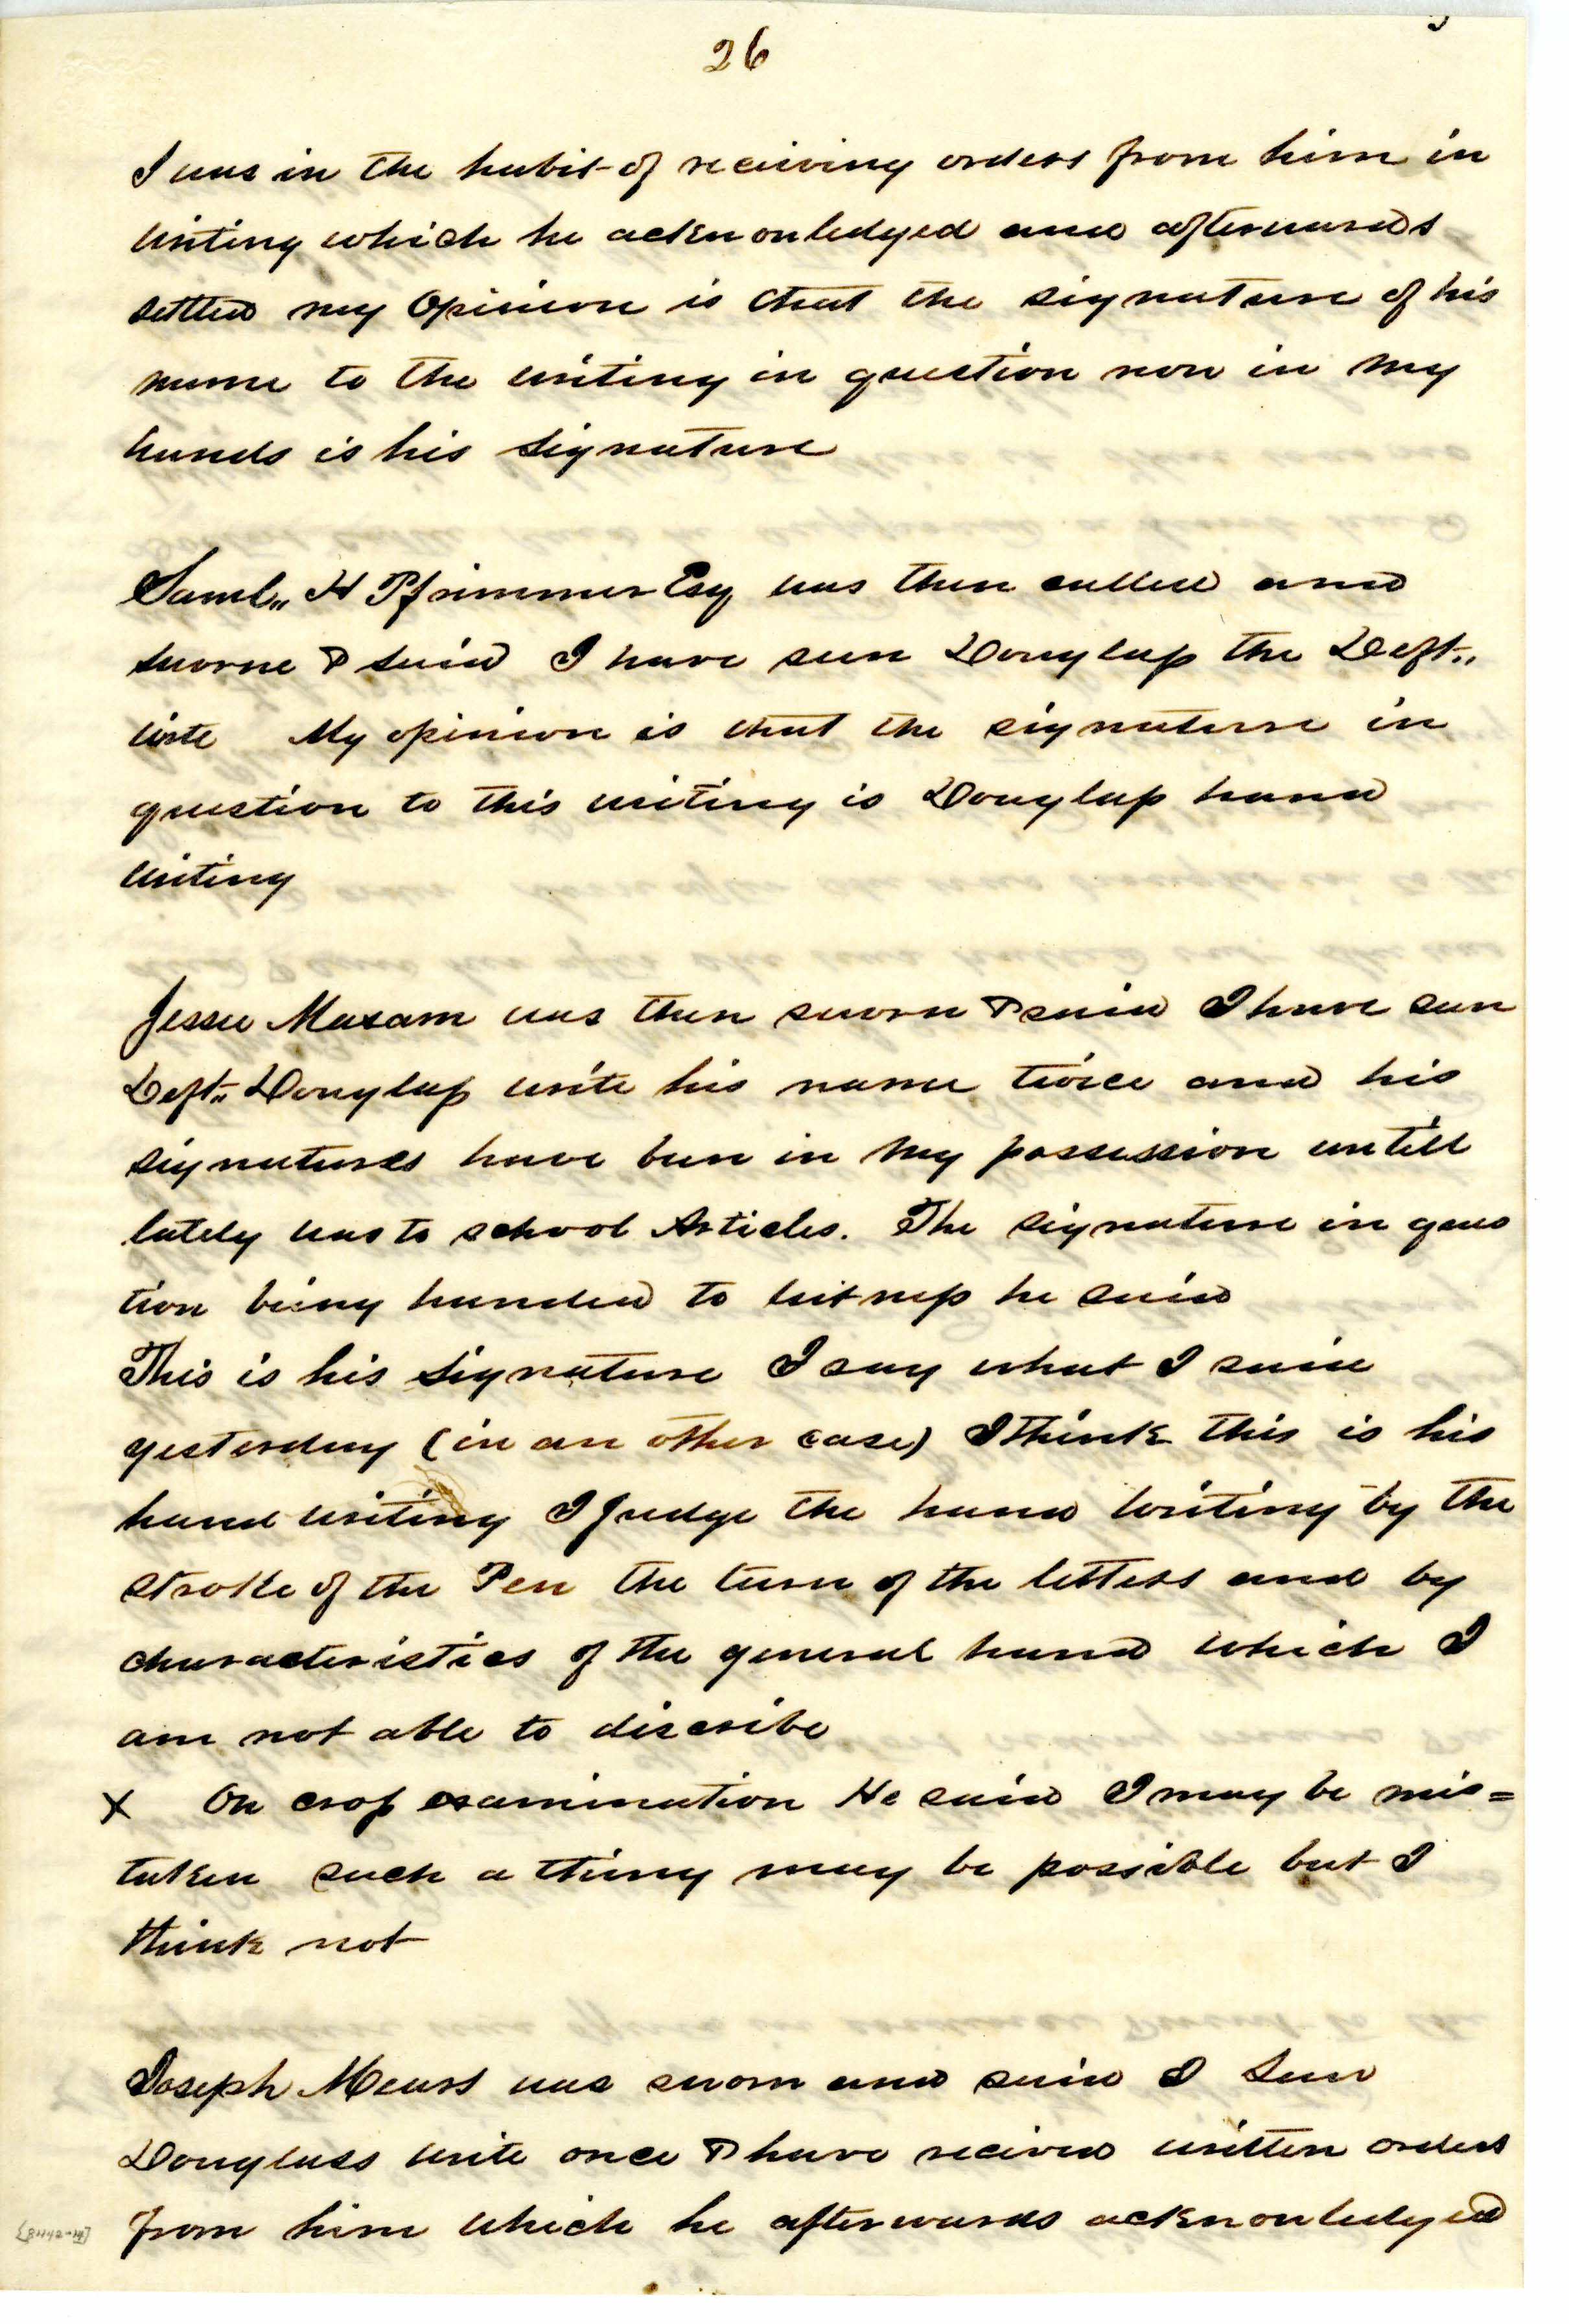 26
I was in the habit of receiving orders from him in
writing which he acknowledged and afterwards
settled my Opinion is that the signature of his
name to the writing in question now in my
hands is his signature
Saml,, H Pfrimmer Esq was then called and
sworne & said I have seen Douglass the Deft,,
write My opinion is that the signature in
question to this writing is Douglass hand
writing
Jesse Maxam was then sworn & said I have seen
Deft,, Douglass write his name twice and his
signatures have been in my possession untill
lately was to school Articles. The signature in ques
tion being handed to witness he said
This is his signature I say what I said
yesterday (in an other case) I think this is his
hand writing I judge the hand writing by the
stroke of the Pen the turn of the letters and by
characteristics of the general hand which I
am not able to discribe
X On cross examination He said I may be mis=
taken such a thing may be possible but I
think not
Joseph Mears was sworn and said I Seen
Douglass write once & have recived written orders
from him which he afterwards acknowledged